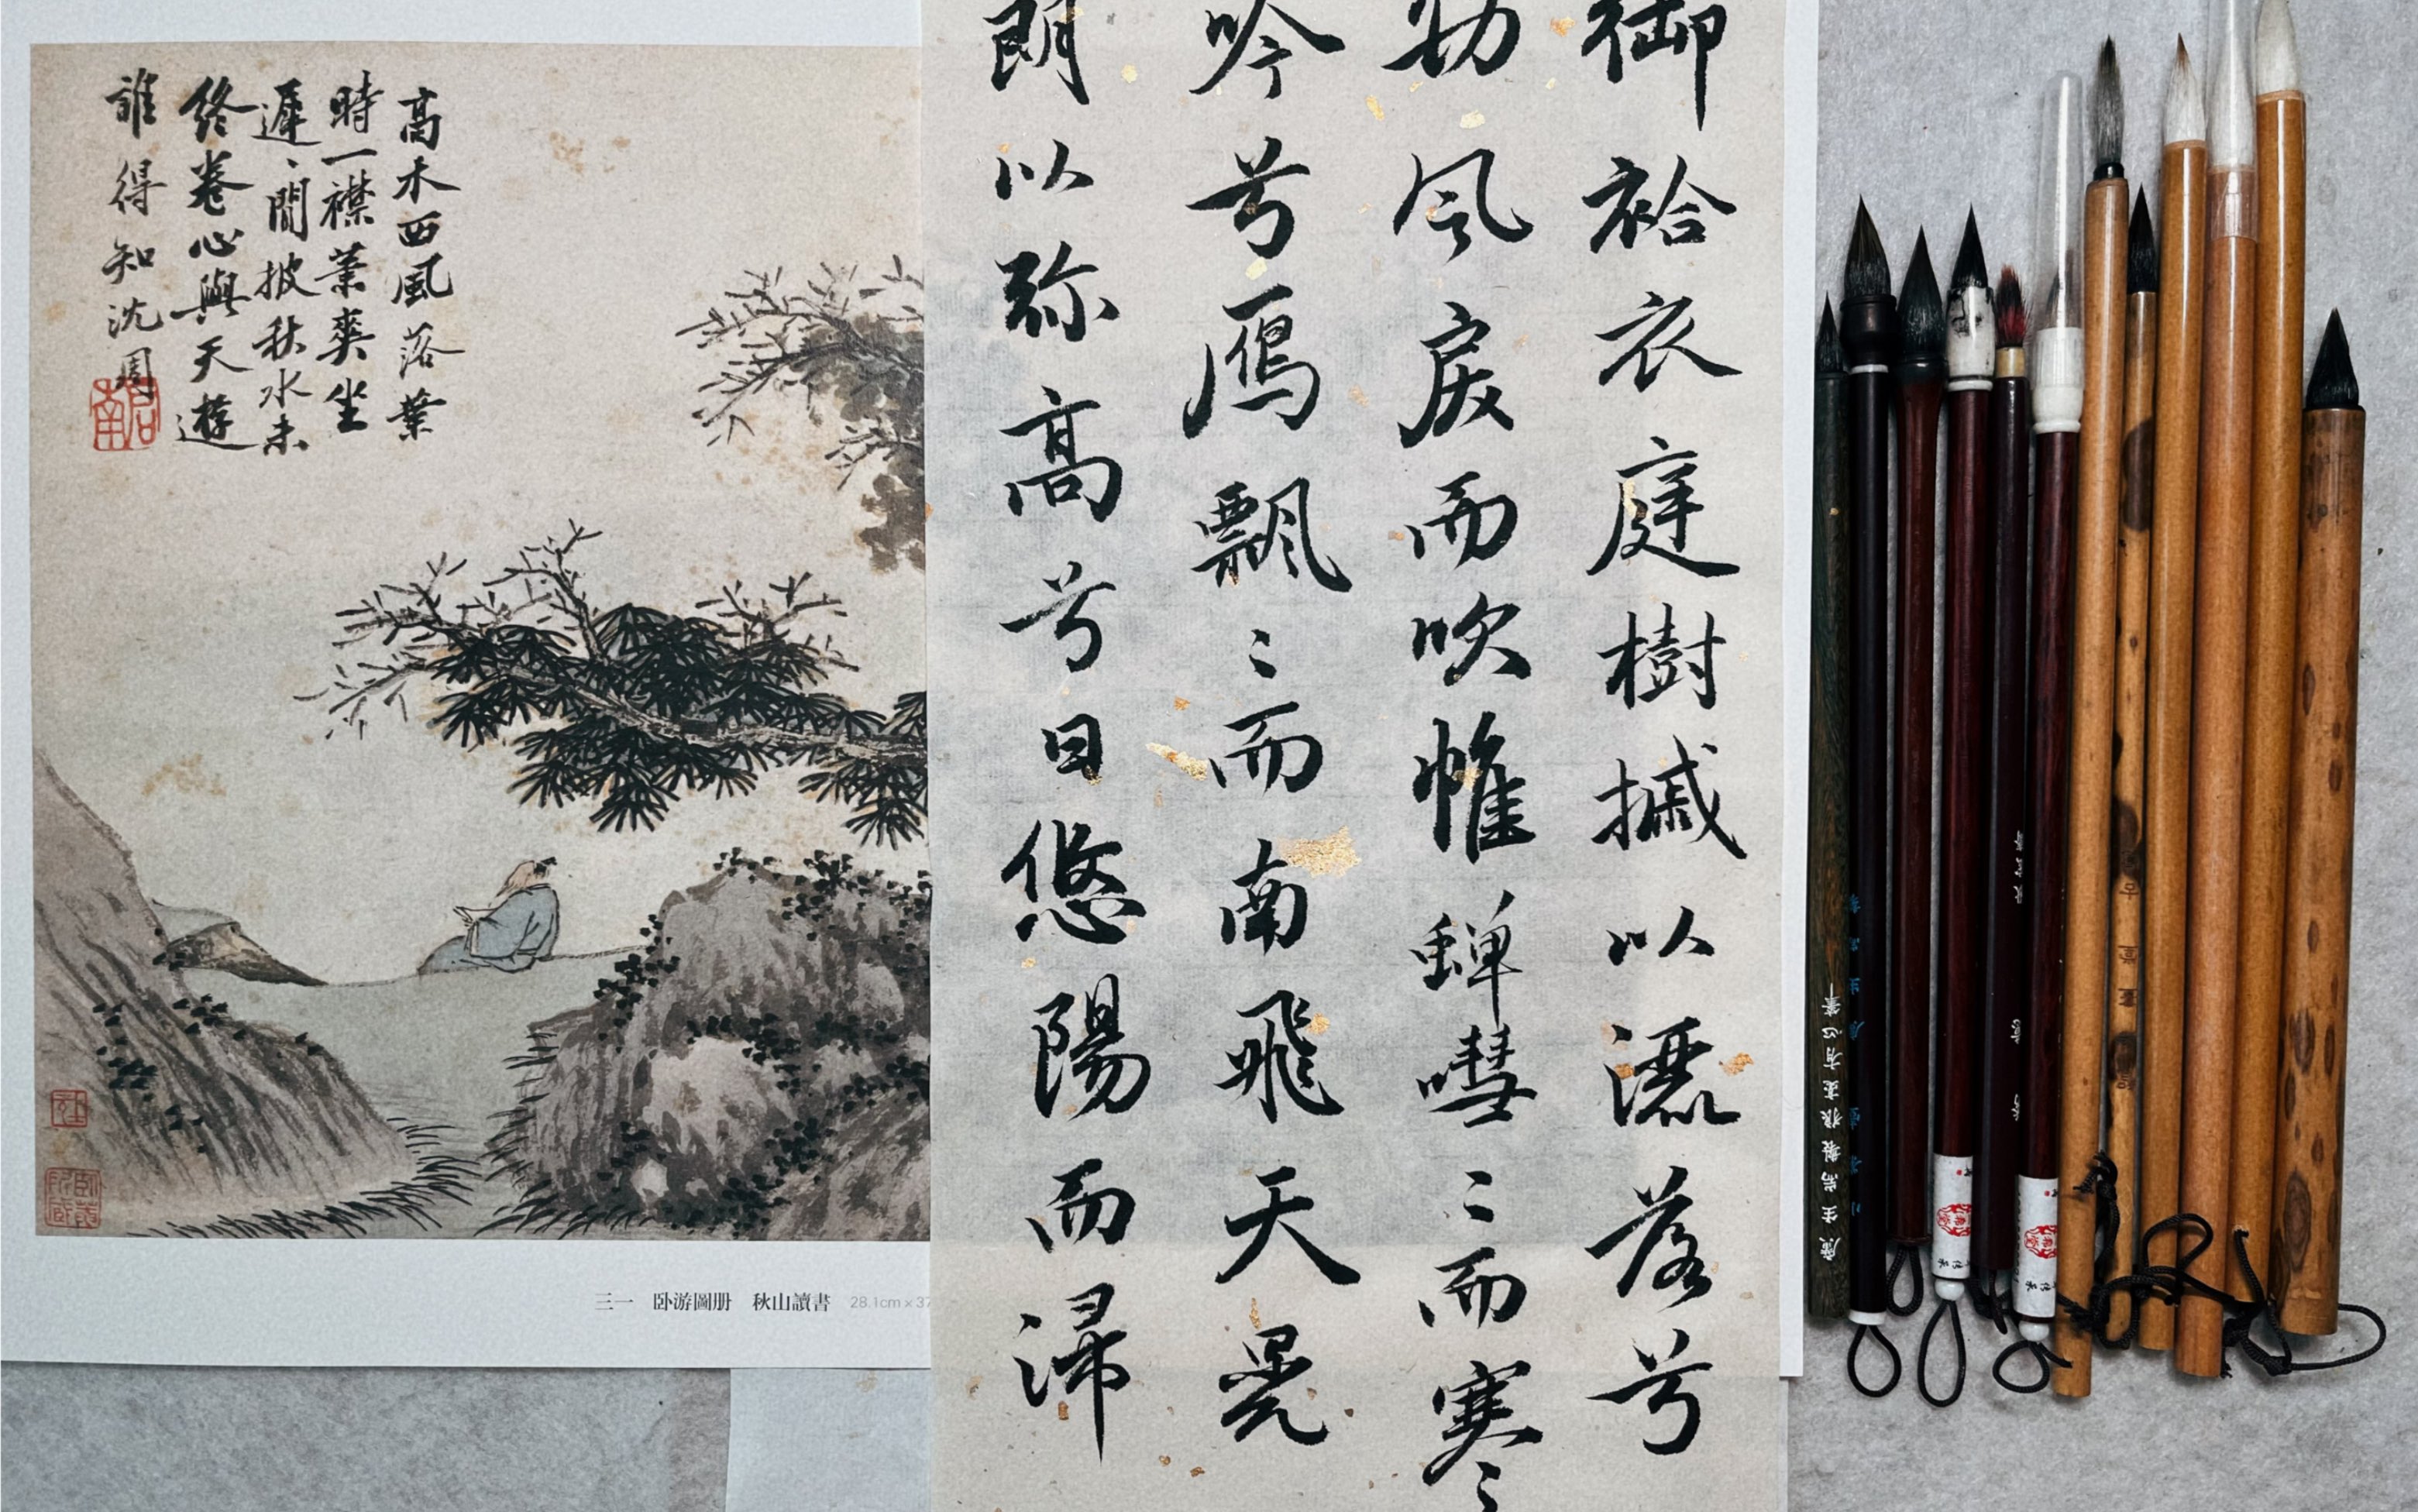 高木西風落葉
時一襟蕭爽坐
遲、閒披秋水未
終卷心與天遊
誰得知沈周
啓南
三一 卧游圖册 秋山讀書 28.1cm×37
御袷衣庭樹摵以灑落兮
劲風戾而吹帷蟬嘒〻而寒〻
吟兮鴈飄〻而南飛天晃
朗以弥高兮日悠陽而浸